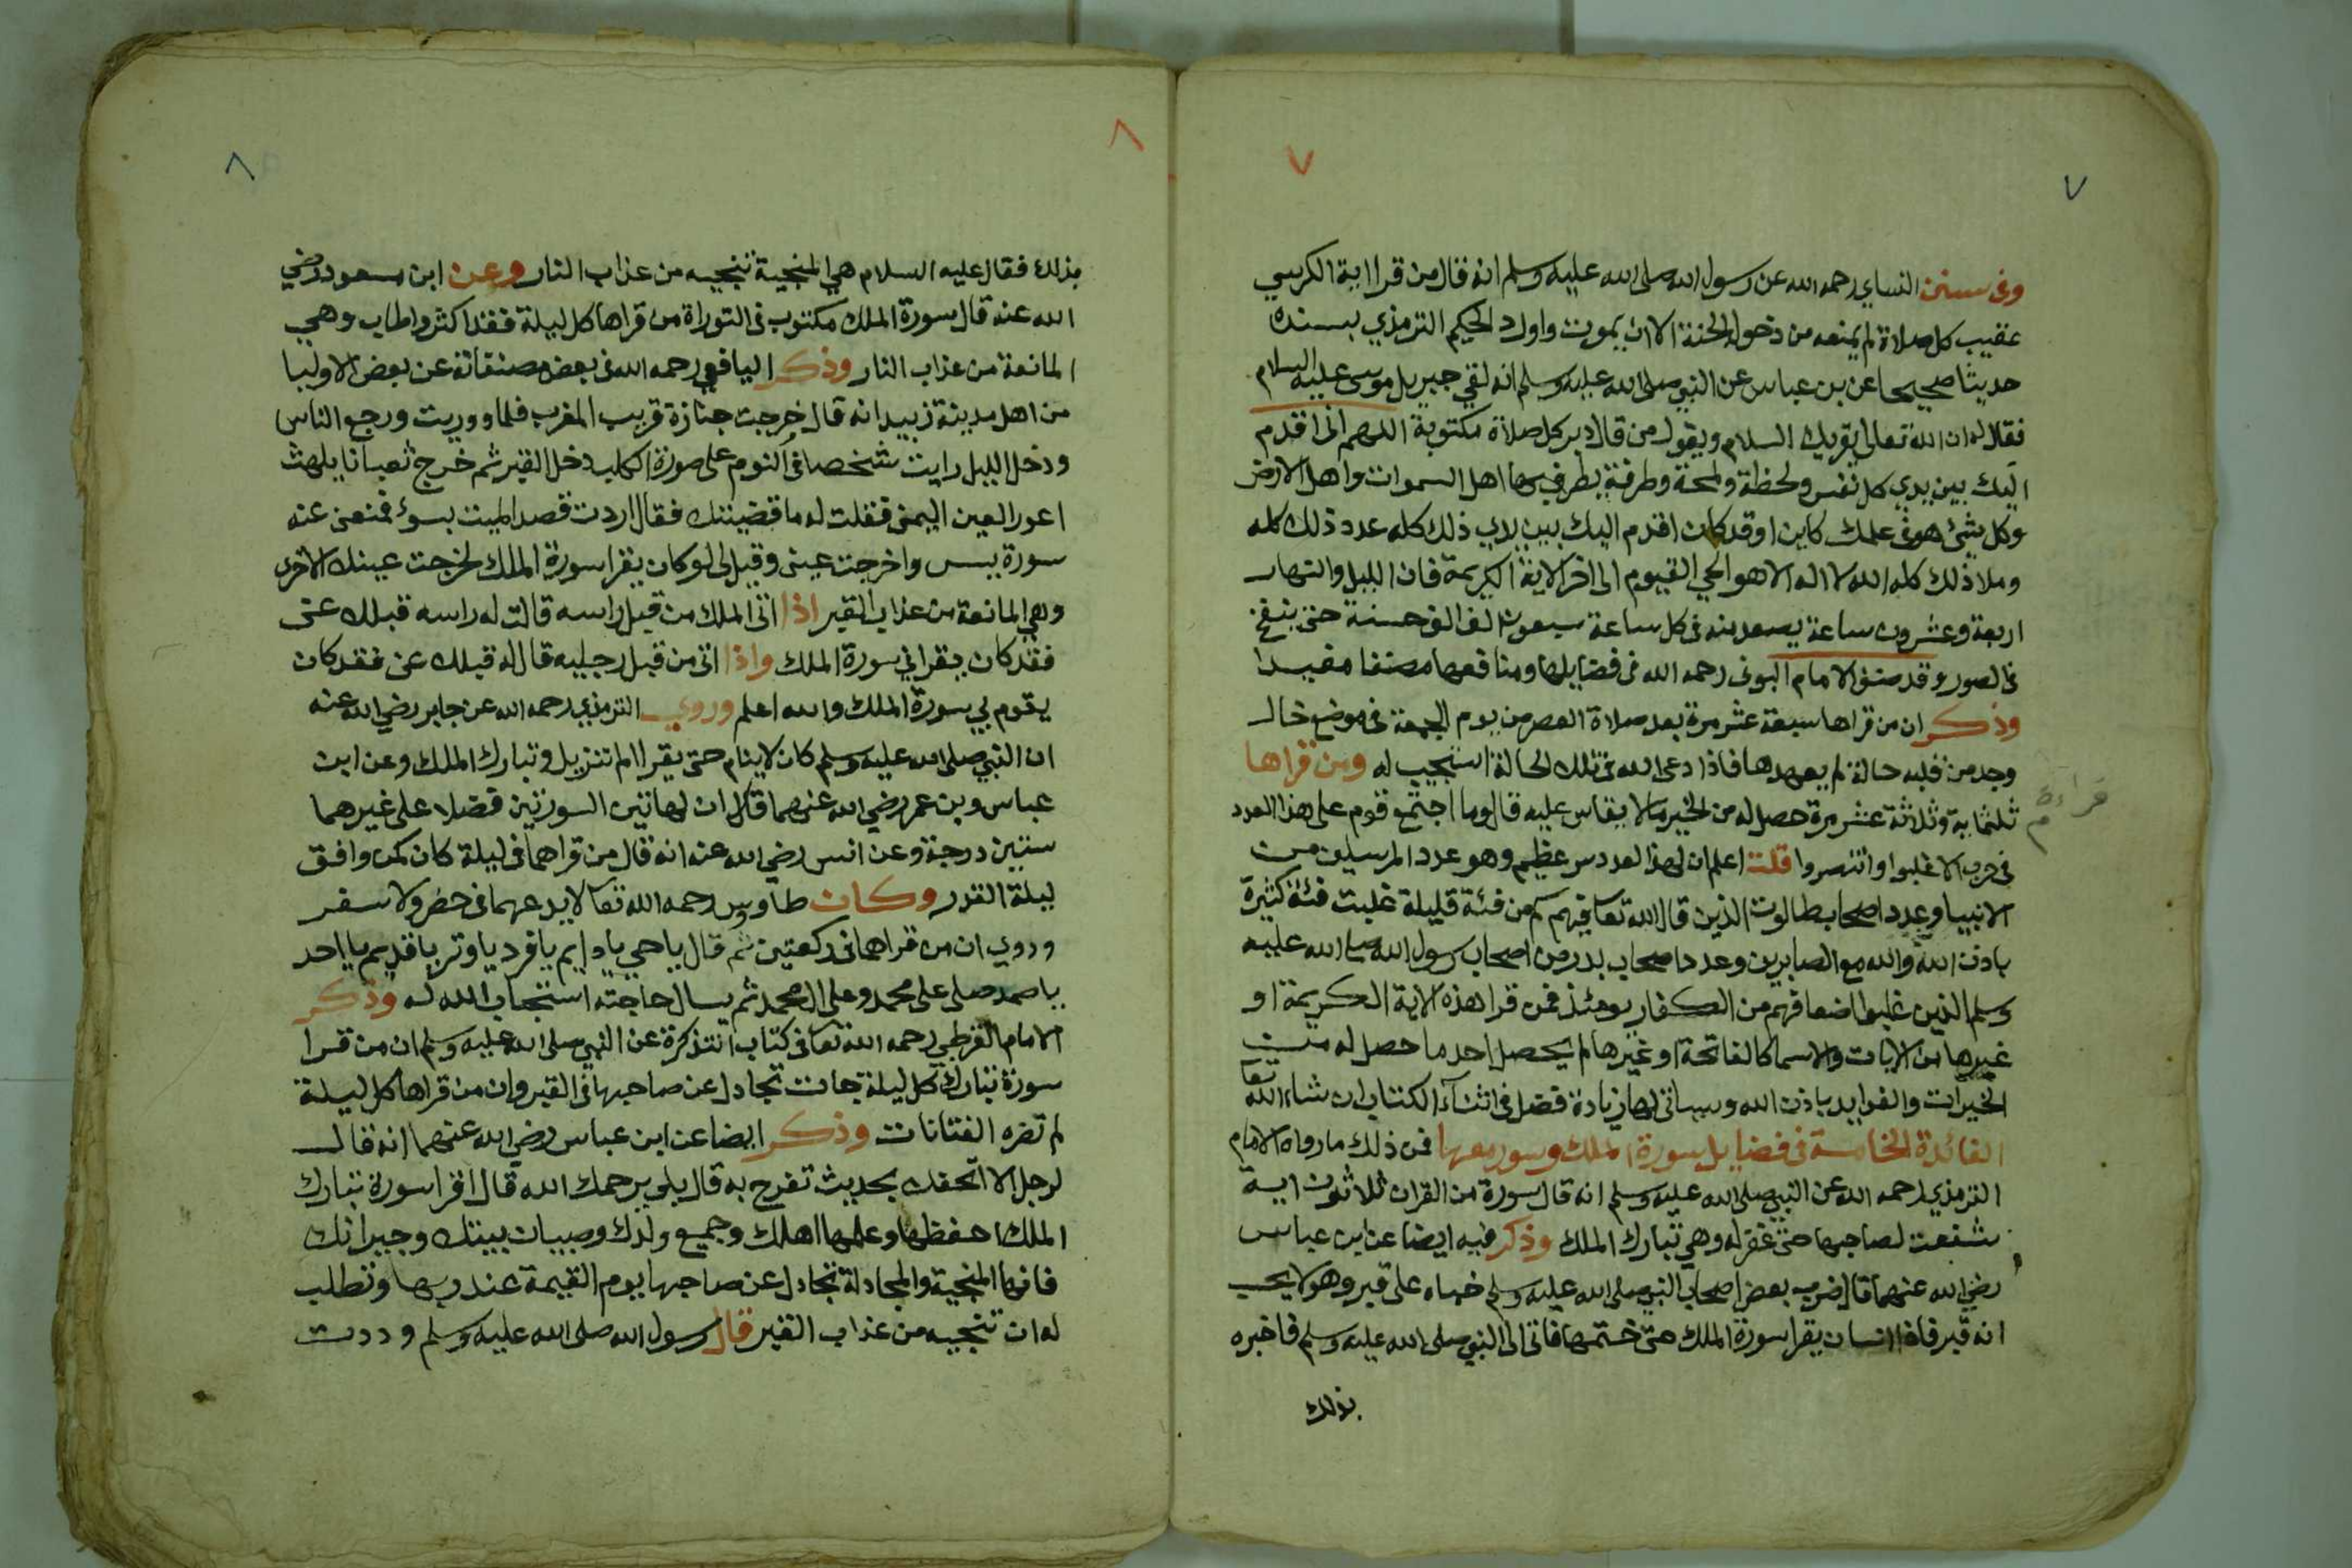 ٧
٧
وفى سنن النساي رحمه الله عن رسول الله صلى الله عليه وسلم انه قال من قرا اية الكرسي
عقيب كل صلاة لم يمنعه من دخول الجنة الا ان يموت واورد الحكيم الترمذي بسنده
حديثا صحيحا عن بن عباس عن النبي صلى الله عليه وسلم انه لقي جبريل موسى عليه السلام
فقال له ان الله تعالى يقريك السلام ويقول من قال دبر كل صلاة مكتوبة اللهم انى اقدم
اليك بين يدي كل نفس ولحظة ولمحة وطرفة يطرف بها اهل السموات واهل الارض
وكل شئ هو فى علمك كاين او قد كان اقدم اليك بين يدي ذلك كله عدد ذلك كله
وملا ذلك كله الله لا اله الا هو الحي القيوم الى اخر الاية الكريمة فان الليل والنهار
اربعة وعشرون ساعة يصعد منه فى كل ساعة سبعون الف الف حسنة حتى ينفخ
فى الصور وقد صنف الامام البونى رحمه الله فى فضايلها ومنافعها مصنفا مفيدا
وذكر ان من قراها سبعة عشر مرة بعد صلاة العصر من يوم الجمعة فى موضع خال
وجد من قلبه حالة لم يعهدها فاذا دعى الله فى تلك الحالة استجيب له ومن قراها
ثلثماية وثلاثة عشر مرة حصل له من الخير ما لا يقاس عليه قال وما اجتمع قوم على هذا العدد
قراءة
فى حرب الا غلبوا وانتصروا قلت اعلم ان لهذا العدد سر عظيم وهو عدد المرسلين من
الانبيا وعدد اصحاب طالوت الذين قال الله تعا فيهم كم من فئة قليلة غلبت فئة كثيرة
باذن الله والله مع الصابرين وعدد اصحاب بدر من اصحاب رسول الله صلى الله عليه
وسلم الذين غلبوا اضعافهم من الكفار يومئذ فمن قرا هذه الاية الكريمة او
غيرها من الايات والاسما كالفاتحة او غيرها لم يحصل احد ما حصل له من
الخيرات والفوايد باذن الله وسياتى لها زيادة فضل فى اثناء الكتاب ان شاء الله تعا
الفائدة الخامسة فى فضايل سورة الملك وسور معها فمن ذلك ما رواه الامام
الترمذي رحمه الله عن النبي صلى الله عليه وسلم انه قال سورة من القران ثلاثون اية
شفعت لصاحبها حتى غفر له وهي تبارك الملك وذكر فيه ايضا عن ابن عباس
رضي الله عنهما قال ضرب بعض اصحاب النبي صلى الله عليه وسلم خباه على قبر وهو لا يحسب
انه قبر فاذا انسان يقرا سورة الملك حتى ختمها فاتى الى النبي صلى الله عليه وسلم فاخبره
بذلك
٨
٨
بذلك فقال عليه السلام هي المنجية تنجيه من عذاب النار وعن ابن مسعود رضي
الله عنه قال سورة الملك مكتوب فى التوراة من قراها كل ليلة فقد اكثر واطاب وهي
المانعة من عذاب النار وذكر اليافعي رحمه الله فى بعض مصنفاته عن بعض الاوليا
من اهل مدينة زبيد انه قال خرجت جنازة قريب المغرب فلما ووريت ورجع الناس
ودخل الليل رايت شخصا فى النوم على صورة الكلب دخل القبر ثم خرج تعبانا يلهث
اعور العين اليمنى فقلت له ما قضيتك فقال اردت قصد الميت بسوء فمنعنى عنه
سورة يس واخرجت عينى وقيل لى لو كان يقرا سورة الملك لخرجت عينك الاخرى
وهي المانعة من عذاب القبر اذا اتى الملك من قبل راسه قالت له راسه قبلك عنى
فقد كان يقرا فيَّ سورة الملك واذا اتى من قبل رجليه قال له قبلك عنى فقد كان
يقوم بي بسورة الملك والله اعلم وروي الترمذي رحمه الله عن جابر رضي الله عنه
ان النبي صلى الله عليه وسلم كان لا ينام حتى يقرا الم تنزيل وتبارك الملك وعن ابن
عباس وبن عمر رضي الله عنهما قال ان لهاتين السورتين فضلا على غيرهما
ستين درجة وعن انس رضي الله عنه انه قال من قراهما فى ليلة كان كمن وافق
ليلة القدر وكان طاووس رحمه الله تعا لا يدعهما فى حضر ولا سفر
وروي ان من قراهما فى ركعتين ثم قال يا حي يا دايم يا فرد يا وتر يا قديم يا احد
يا صمد صلى على محمد وعلى ال محمد ثم يسال حاجته استجاب الله له وذكر
الامام القرطبي رحمه الله تعا فى كتاب التذكرة عن النبي صلى الله عليه وسلم ان من قرا
سورة تبارك كل ليلة جات تجادل عن صاحبها فى القبر وان من قراها كل ليلة
لم تضره الفتانات وذكر ايضا عن ابن عباس رضي الله عنهما انه قال
لرجل الا اتحفك بحديث تفرح به قال بلى يرحمك الله قال اقرا سورة تبارك
الملك احفظها وعلمها اهلك وجميع ولدك وصبيان بيتك وجيرانك
فانها المنجية والمجادلة تجادل عن صاحبها يوم القيمة عند ربها وتطلب
له ان تنجيه من عذاب القبر قال رسول الله صلى الله عليه وسلم وددت